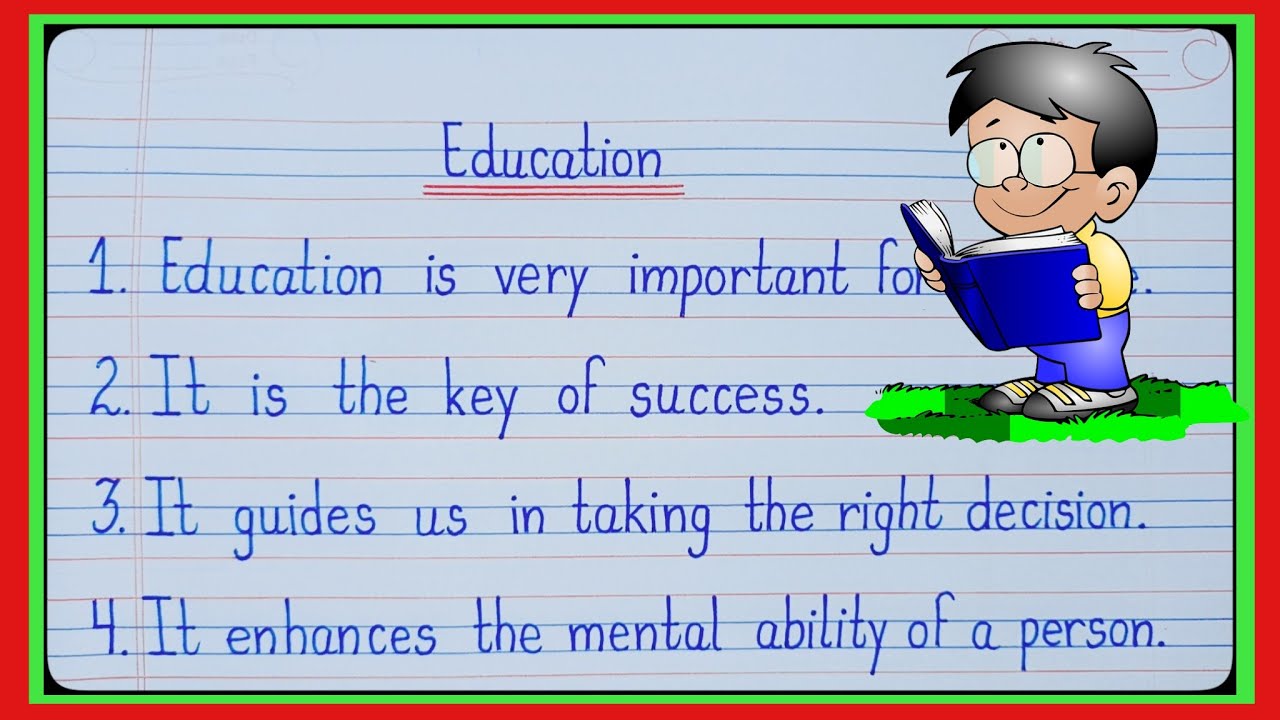 Education
1. Education is very important for
2. It is the key of success.
3. It guides us in taking the right decision.
4. It enhances the mental ability of a person.